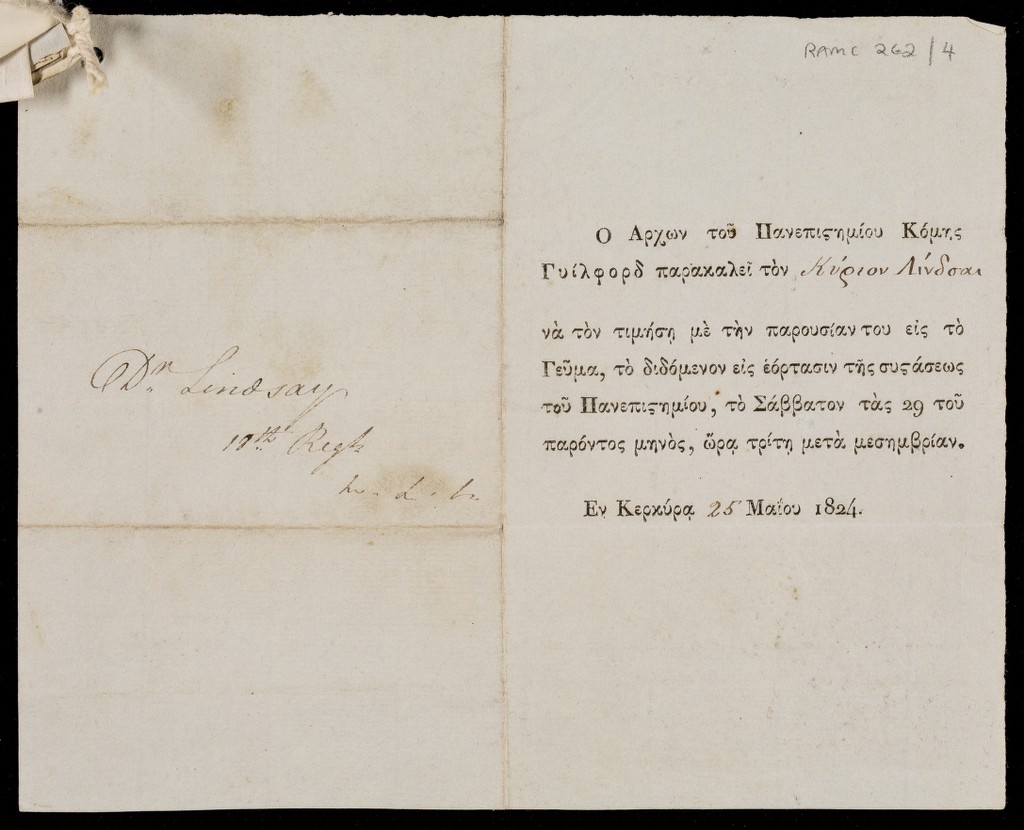 RAMC 262/4
Dr. Lindsay
18th. Regt.
Ο Αρχων τοῦ Πανεπιϛημίου Κόμης
Γυίλφορδ παρακαλεῖ τὸν Κύριον Λίνδσαι
νὰ τὸν τιμήσῃ μὲ τὴν παρουσίαν του εἰς τὸ
Γεῦμα, τὸ διδόμενον εἰς ἑόρτασιν τῆς συϛάσεως
τοῦ Πανεπιϛημίου, τὸ Σάββατον τὰς 29 τοῦ
παρόντος μηνὸς, ὥρᾳ τρίτῃ μετὰ μεσημβρίαν.
Εν Κερκύρᾳ 25 Μαΐου 1824.